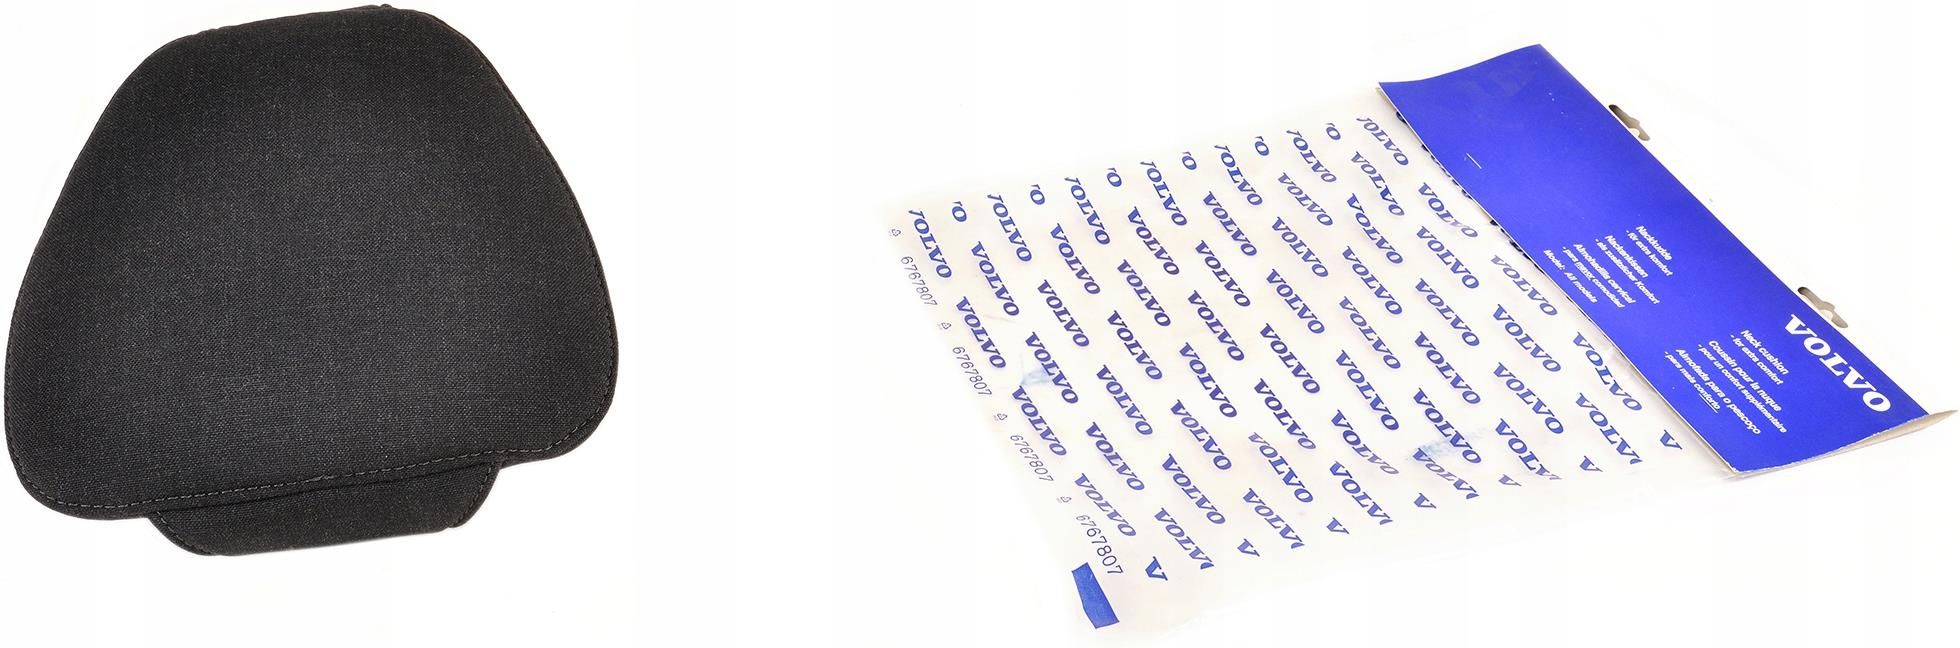 VOLVO
Nackkudde
- för extra komfort
Nackenkissen
- als zusätzlicher Komfort
Almohadilla cervical
- para mayor comodidad
Model: All models
Neck cushion
- for extra comfort
Coussin pour la nuque
- pour un confort supplémentaire
Almofada para o pescoço
- para mais conforto
VOLVO VOLVO VOLVO VOLVO VOLVO VOLVO VOLVO
VOLVO VOLVO VOLVO VOLVO VOLVO VOLVO VOLVO
VOLVO VOLVO VOLVO VOLVO VOLVO VOLVO VOLVO
VOLVO VOLVO VOLVO VOLVO VOLVO VOLVO VOLVO
VOLVO VOLVO VOLVO VOLVO VOLVO VOLVO VOLVO
6767807
6767807
6767807
6767807